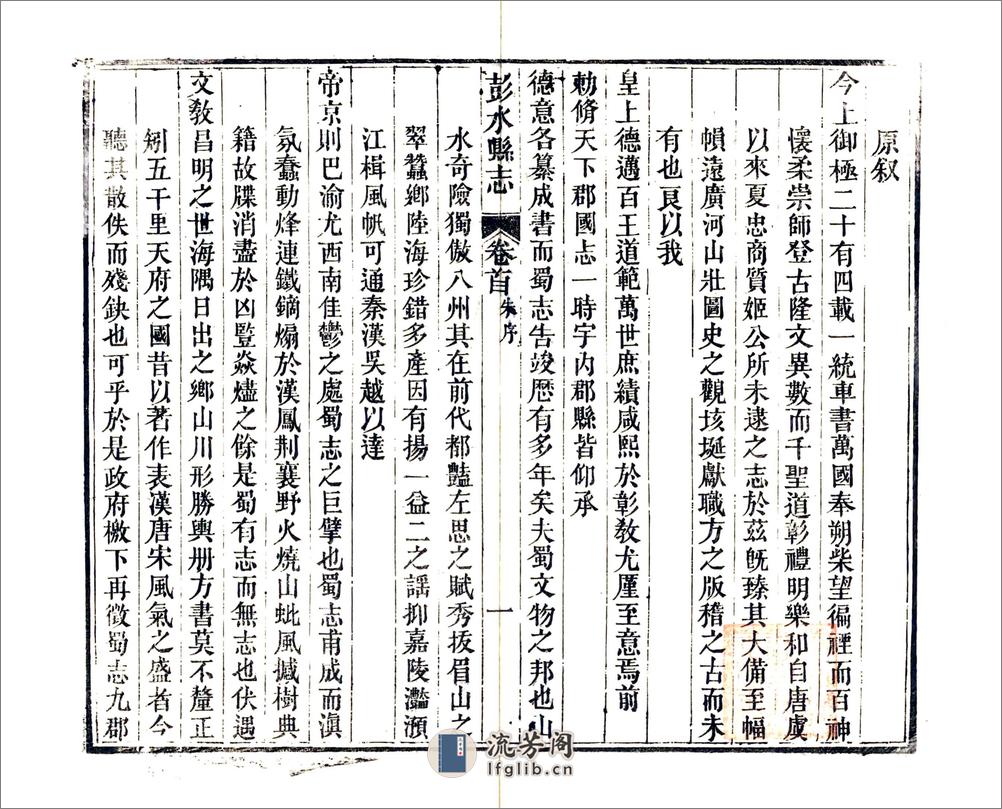 原叙
今上御極二十有四載一統車書萬國奉朔柴望徧禋而百神
懷柔崇師登古隆文異數而千聖道彰禮明樂和自唐虞
以來夏忠商質姬公所未逮之志於茲旣臻其大備至幅
幀遠廣河山壯圖史之觀垓埏獻職方之版稽之古而未
有也良以我
皇上德邁百王道範萬世庶績咸熙於彰教尤厪至意焉前
勅脩天下郡國志一時宇內郡縣皆仰承
德意各纂成書而蜀志告竣歷有多年矣夫蜀文物之邦也山
彭水縣志 卷首 朱序 一
水奇險獨倣八州其在前代都豔左思之賦秀㧞眉山之
翠蠶鄉陸海珍錯多產因有揚一益二之謡抑嘉陵灩澦
江楫風帆可通秦漢吳越以達
帝京則巴渝尤西南佳鬱之處蜀志之巨擘也蜀志甫成而滇
氛蠢動烽連鐵鏑煽於漢鳳荆襄野火燒山虵風撼樹典
籍故牒消盡於凶豎焱燼之餘是蜀有志而無志也伏遇
文教昌明之世海隅日出之鄉山川形勝輿册方書莫不釐正
矧五千里天府之國昔以著作表漢唐宋風氣之盛者今
聽其散佚而殘缺也可乎於是政府檄下再徵蜀志九郡
流芳阁
lfglib.cn